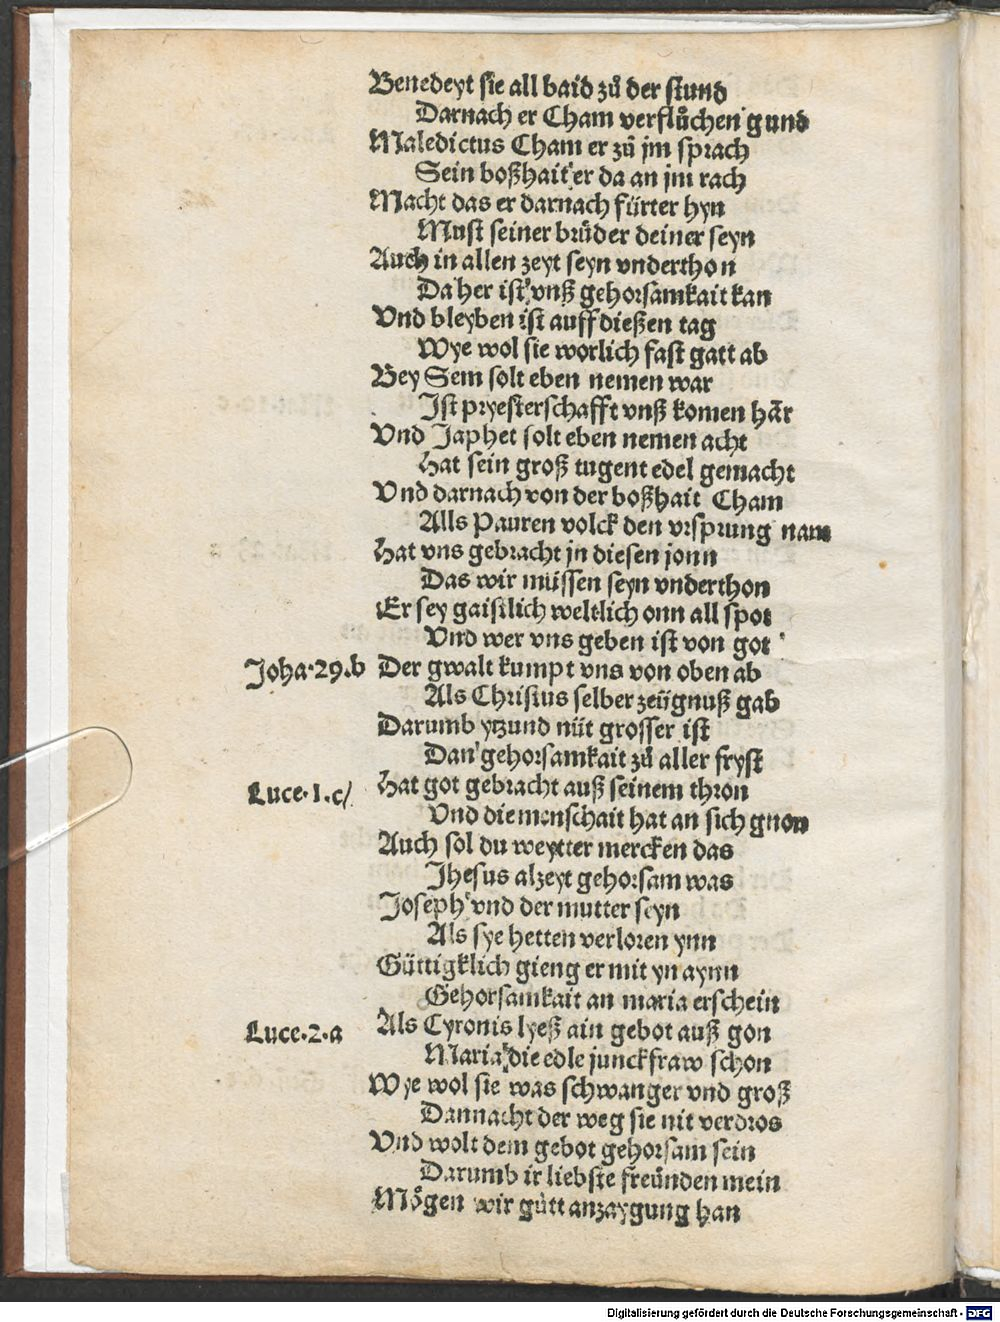 Benedeyt sie all baid zů der stund
Darnach er Cham verflůchen gund
Maledictus Cham er zů jm sprach
Sein boßhait er da an jm rach
Macht das er darnach fürter hyn
Must seiner brůder deiner seyn
Auch in allen zeyt seyn vnderthon
Da her ist vnß gehorsamkait kan
Vnd bleyben ist auff dießen tag
Wye wol sie worlich fast gatt ab
Bey Sem solt eben nemen war
Ist pryesterschafft vnß komen här
Vnd Japhet solt eben nemen acht
Hat sein groß tugent edel gemacht
Vnd darnach von der boßhait Cham
Alls Pauren volck den vrsprung nam
Hat vns gebracht jn diesen jonn
Das wir müssen seyn vnderthon
Er sey gaistlich weltlich onn all spot
Vnd wer vns geben ist von got
Joha·29.b Der gwalt kumpt vns von oben ab
Als Christus selber zeügnuß gab
Darumb ytzund nüt grosser ist
Dan gehorsamkait zů aller fryst
Luce·1.c/ Hat got gebracht auß seinem thron
Vnd die menschait hat an sich gnon
Auch sol du weytter mercken das
Jhesus alzeyt gehorsam was
Joseph vnd der mutter seyn
Als sye hetten verloren ynn
Güttigklich gieng er mit yn aynn
Gehorsamkait an maria erschein
Luce·2·a Als Cyronis lyeß ain gebot auß gon
Maria die edle junckfraw schon
Wye wol sie was schwanger vnd groß
Dannacht der weg sie nit verdros
Vnd wolt dem gebot gehorsam sein
Darumb ir liebste freůnden mein
Mögen wir gůtt anzaygung han
Digitalisierung gefördert durch die Deutsche Forschungsgemeinschaft - DFG